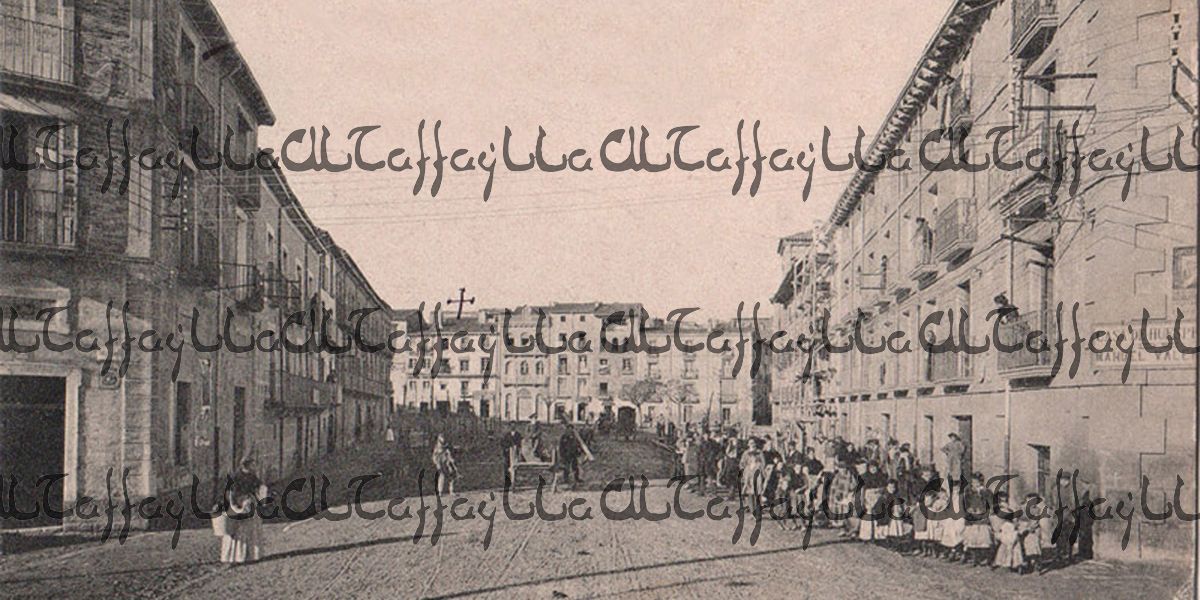 AlTaffayLLa AlTaffayLLa AlTaffayLLa AlTaffayLL
AlTaffayLLa AlTaffayLLa AlTaffayLLa AlTaffayLL
AlTaffayLLa AlTaffayLLa AlTaffayLLa AlTaffayLL